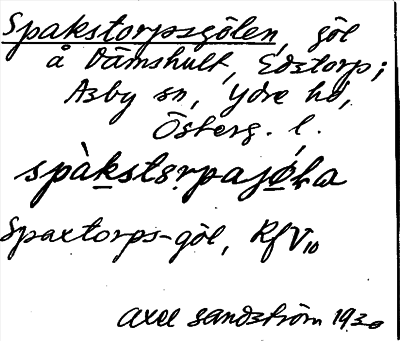 Spakstorpsgölen, göl
å Dämshult, Edstorp;
Asby sn, Ydre hd,
Österg. l.
spàkstørpajø̀ɫa
Spaxtorps-göl, Rf V 10
Axel Sandström 1930